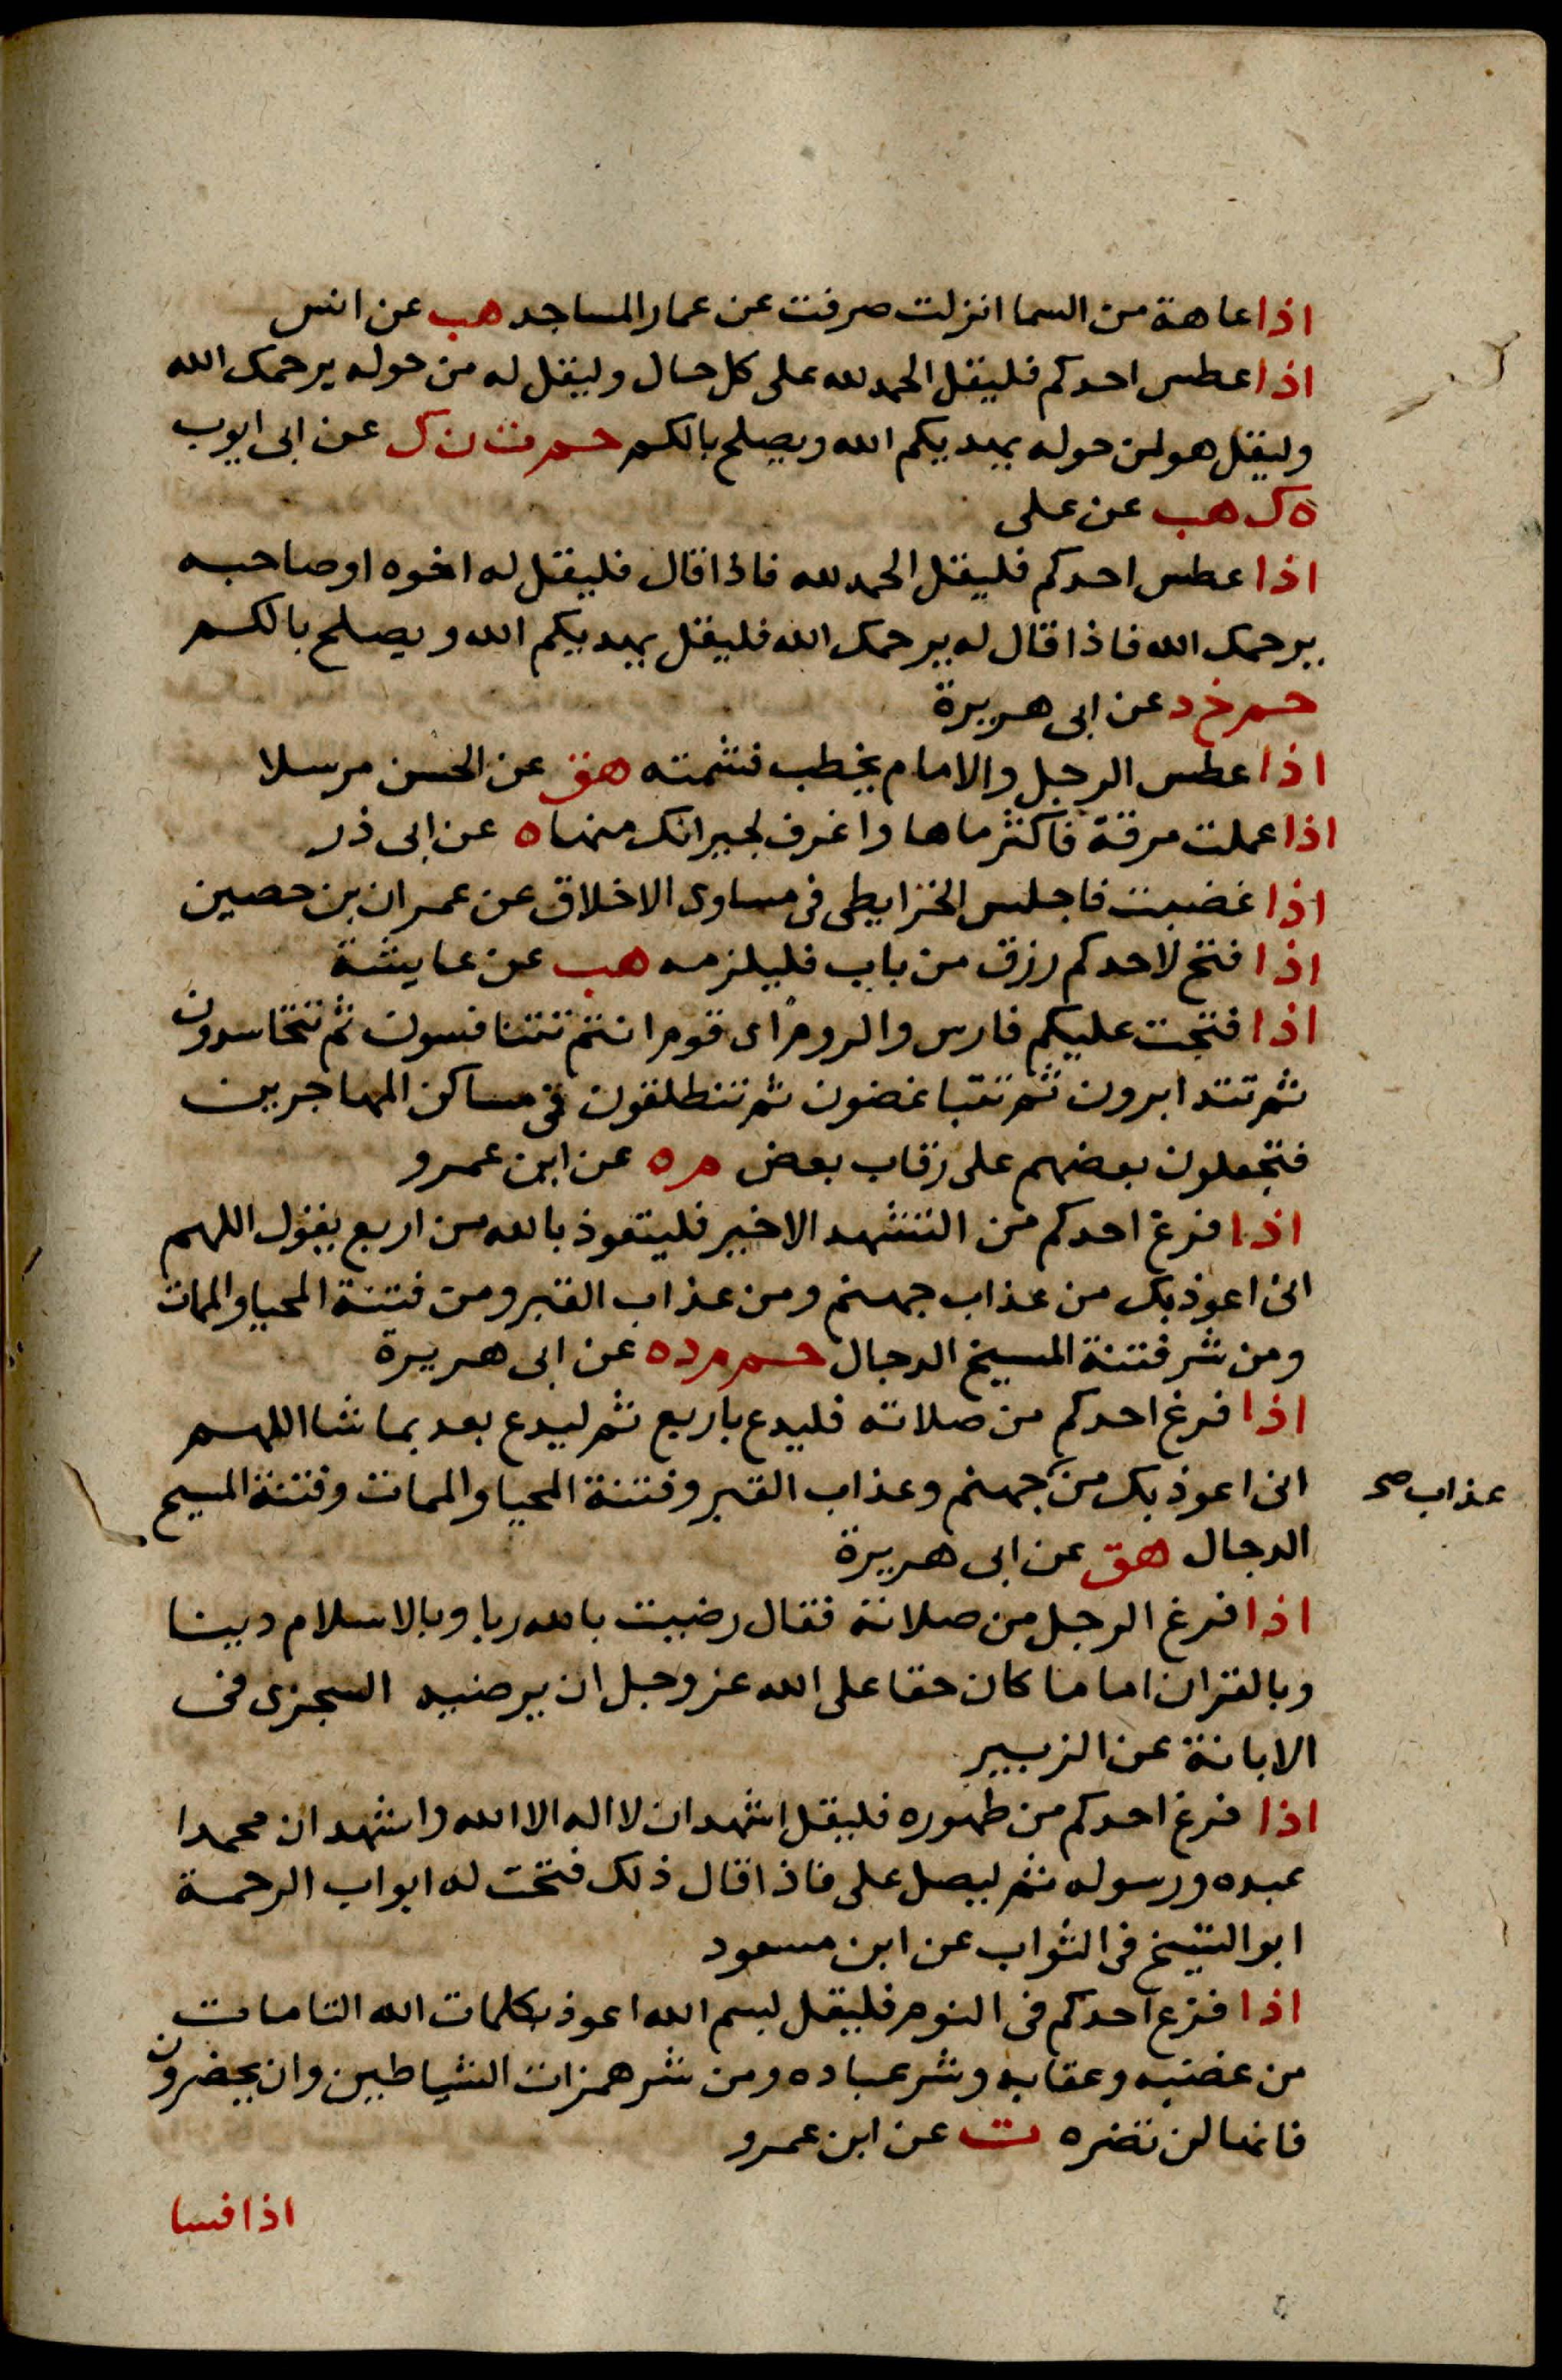 اذا عاهة من السما انزلت صرفت عن عمار المساجد هب عن انس
اذا عطس احدكم فليقل الحمد لله على كل حال وليقل له من حوله يرحمك الله
وليقل هو لمن حوله يهديكم الله ويصلح بالكم حم ت ن ك عن ابى ايوب
ه ك هب عن على
اذا عطس احدكم فليقل الحمد لله فاذا قال فليقل له اخوه او صاحبه
يرحمك الله فاذا قال له يرحمك الله فليقل يهديكم الله ويصلح بالكم
حم خ د عن ابى هريرة
اذا عطس الرجل والامام يخطب فشمته هق عن الحسن مرسلا
اذا عملت مرقة فاكثر ماها واغرف لجيرانك منها ه عن ابى ذر
اذا غضبت فاجلس الخرايطى فى مساوى الاخلاق عن عمران بن حصين
اذا فتح لاحدكم رزق من باب فليلزمه هب عن عايشة
اذا فتحت عليكم فارس والروم اى قوم انتم تتنافسون ثم تتحاسدون
ثم تتدابرون ثم تتباغضون ثم تنطلقون فى مساكن المهاجرين
فتجعلون بعضهم على رقاب بعض م ه عن ابن عمرو
اذا فرغ احدكم من التشهد الاخير فليتعوذ بالله من اربع يقول اللهم
انى اعوذ بك من عذاب جهنم ومن عذاب القبر ومن فتنة المحيا والممات
ومن شر فتنة المسيح الدجال حم م د ه عن ابى هريرة
اذا فرغ احدكم من صلاته فليدع باربع ثم ليدع بعد بما شا اللهم
انى اعوذ بك من جهنم وعذاب القبر وفتنة المحيا والممات وفتنة المسيح
عذاب صح
الدجال هق عن ابى هريرة
اذا فرغ الرجل من صلاته فقال رضيت بالله ربا وبالاسلام دينا
وبالقران اماما كان حقا على الله عز وجل ان يرضيه السجزى فى
الابانة عن الزبير
اذا فرغ احدكم من طهوره فليقل اشهد ان لا اله الا الله واشهد ان محمدا
عبده ورسوله ثم ليصل على فاذا قال ذلك فتحت له ابواب الرحمة
ابو الشيخ فى الثواب عن ابن مسعود
اذا فزع احدكم فى النوم فليقل بسم الله اعوذ بكلمات الله التامات
من غضبه وعقابه وشر عباده ومن شر همزات الشياطين وان يحضرون
فانها لن تضره ت عن ابن عمرو
اذا فسا